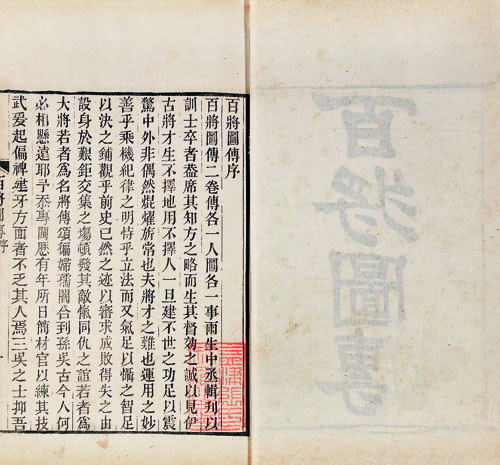 百將圖傳
百將圖傳序
百將圖傳二卷傳各一人圖各一事雨生中丞輯刊以
訓士卒者盡庶其知方之略而生其督効之誠以見伊
古將才生不擇地用不擇人一旦建不世之功足以震
驚中外非偶然焜燿旂常也夫將才之難也運用之妙
善乎乘機紀律之明恃乎立法而又氣足以懾之智足
以決之鋪觀乎前史已然之迹以審求成敗得失之由
設身於艱鉅交集之場頓發其敵愾同仇之誼若者為
大將若者為名將傳須彌 闔合到孫吳古今人何
必相懸遠耶予忝專閫歷有年所日簡材官以練其技
武爰起偏裨建牙方面者不乏其人焉三吳之士抑吾
百將圖傳序
一